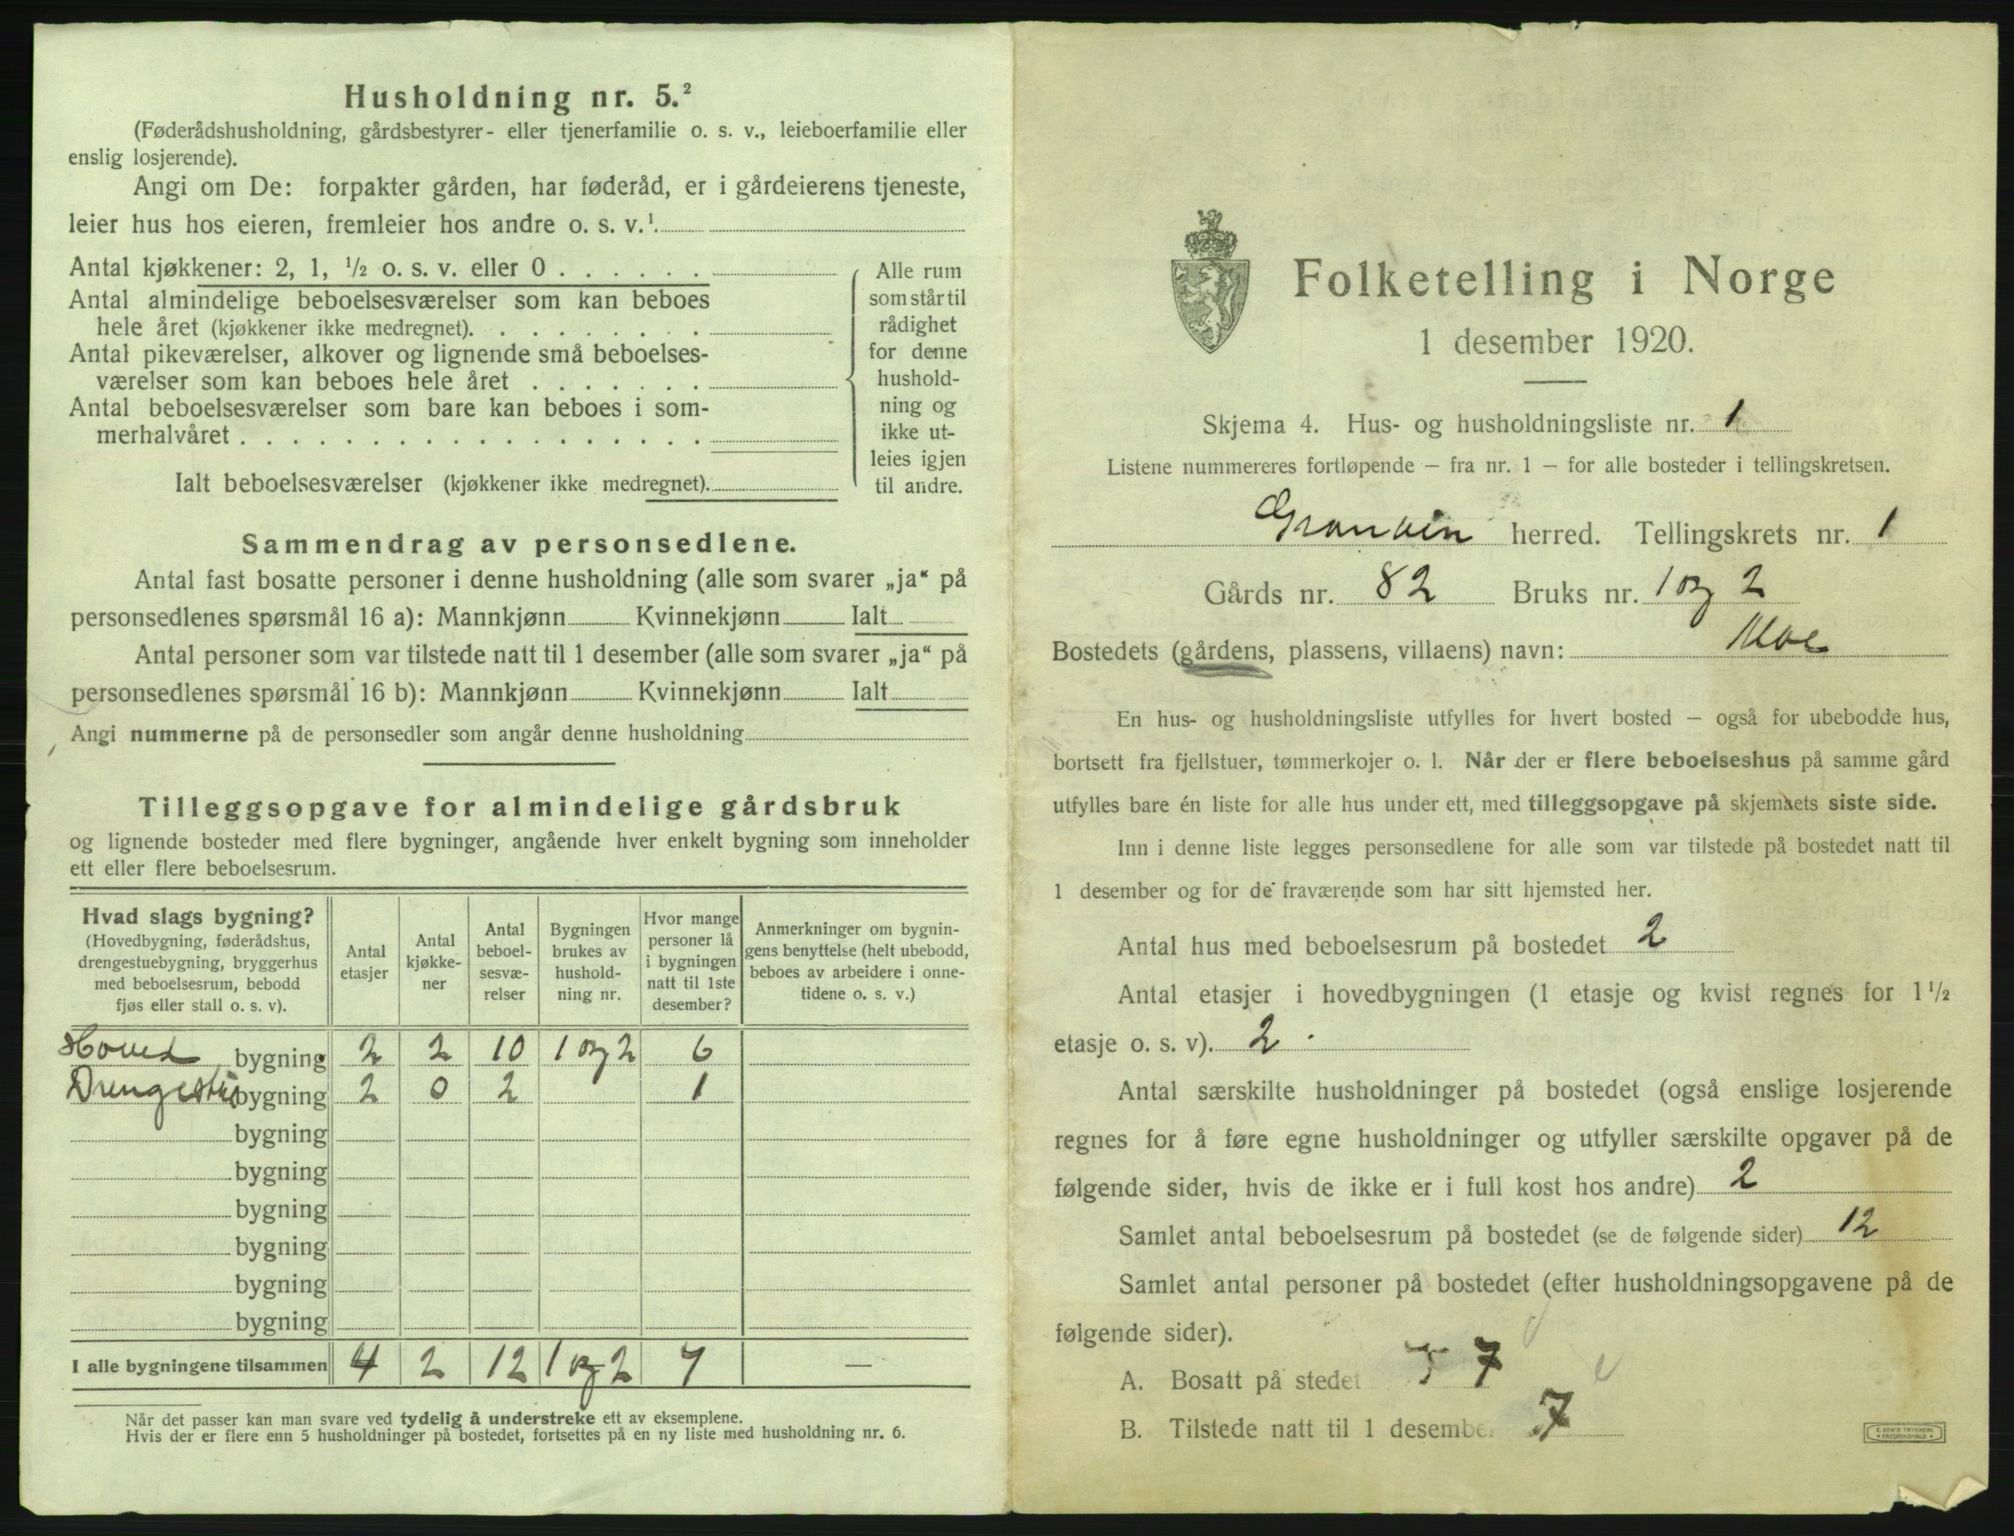 Husholdning nr. 5.²
(Føderådshusholdning, gårdsbestyrer- eller tjenerfamilie o. s. v., leieboerfamilie eller
enslig losjerende).
Angi om De: forpakter gården, har føderåd, er i gårdeierens tjeneste,
leier hus hos eieren, fremleier hos andre o. s. v.¹.
Antal kjøkkener: 2, 1, ½ o. s. v. eller 0 . . . . . .
Antal almindelige beboelsesværelser som kan beboes
hele året (kjøkkener ikke medregnet). . . . . . . . .
Antal pikeværelser, alkover og lignende små beboelses-
værelser som kan beboes hele året . . . . . . .
Antal beboelsesværelser som bare kan beboes i som-
merhalvåret . . . . . . . . . . . . . . . . . .
Ialt beboelsesværelser (kjøkkener ikke medregnet).
Alle rum
som står til
rådighet
for denne
hushold-
ning og
ikke ut-
leies igjen
til andre.
Sammendrag av personsedlene.
Antal fast bosatte personer i denne husholdning (alle som svarer „ja“ på
personsedlenes spørsmål 16 a): Mannkjønn Kvinnekjønn Ialt
Antal personer som var tilstede natt til 1 desember (alle som svarer „ja“ på
personsedlenes spørsmål 16 b): Mannkjønn Kvinnekjønn Ialt
Angi nummerne på de personsedler som angår denne husholdning
Tilleggsopgave for almindelige gårdsbruk
og lignende bosteder med flere bygninger, angående hver enkelt bygning som inneholder
ett eller flere beboelsesrum.
Hvad slags bygning?
(Hovedbygning, føderådshus,
drengestuebygning, bryggerhus
med beboelsesrum, bebodd
fjøs eller stall o. s. v).
Antal
etasjer
Antal
kjøkke-
ner
Antal
beboel-
sesvæ-
relser
Bygningen
brukes av
hushold-
ning nr.
Hvor mange
personer lå
i bygningen
natt til 1ste
desember?
Anmerkninger om bygnin-
gens benyttelse (helt ubebodd,
beboes av arbeidere i onne-
tidene o. s. v.)
Hoved bygning 2 2 10 1 og 2 6
bygning 2 0 2 1
bygning
bygning
bygning
bygning
bygning
bygning
I alle bygningene tilsammen 4 2 12 1 og 2 7 —
Når det passer kan man svare ved tydelig å understreke ett av eksemplene.
Hvis der er flere enn 5 husholdninger på bostedet, fortsettes på en ny liste med husholdning nr. 6.
Folketelling i Norge
1 desember 1920.
Skjema 4. Hus- og husholdningsliste nr. 1
Listene nummereres fortløpende – fra nr. 1 – for alle bosteder i tellingskretsen.
Granvin herred. Tellingskrets nr. 1
Gårds nr. 82 Bruks nr. 1 og 2
Bostedets (gårdens, plassens, villaens) navn: Moe
En hus- og husholdningsliste utfylles for hvert bosted – også for ubebodde hus,
bortsett fra fjellstuer, tømmerkojer o. l. Når der er flere beboelseshus på samme gård
utfylles bare én liste for alle hus under ett, med tilleggsopgave på skjemaets siste side.
Inn i denne liste legges personsedlene for alle som var tilstede på bostedet natt til
1 desember og for de fraværende som har sitt hjemsted her.
Antal hus med beboelsesrum på bostedet 2
Antal etasjer i hovedbygningen (1 etasje og kvist regnes for 1 ½
etasje o. s. v). 2
Antal særskilte husholdninger på bostedet (også enslige losjerende
regnes for å føre egne husholdninger og utfyller særskilte opgaver på de
følgende sider, hvis de ikke er i full kost hos andre) 2
Samlet antal beboelsesrum på bostedet (se de følgende sider) 12
Samlet antal personer på bostedet (efter husholdningsopgavene på de
følgende sider).
A. Bosatt på stedet 7
B. Tilstede natt til 1 desember 7